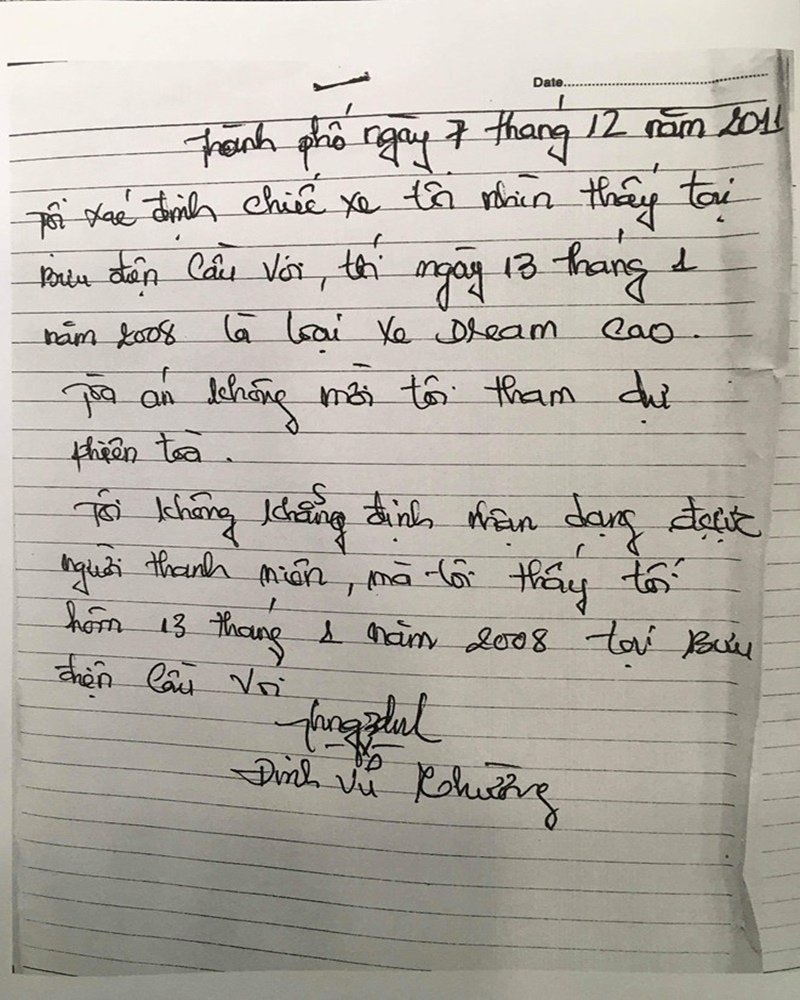 Date
Thành phố ngày 7 tháng 12 năm 2011
Tôi xác định chiếc xe tôi nhìn thấy tại
Bưu điện Cầu Voi, tối ngày 13 tháng 1
năm 2008 là loại xe Dream cao.
Tòa án không mời tôi tham dự
phiên tòa.
Tôi không khẳng định nhận dạng được
người thanh niên, mà tôi thấy tối
hôm 13 tháng 1 năm 2008 tại Bưu
điện Cầu Voi
Đinh Vũ